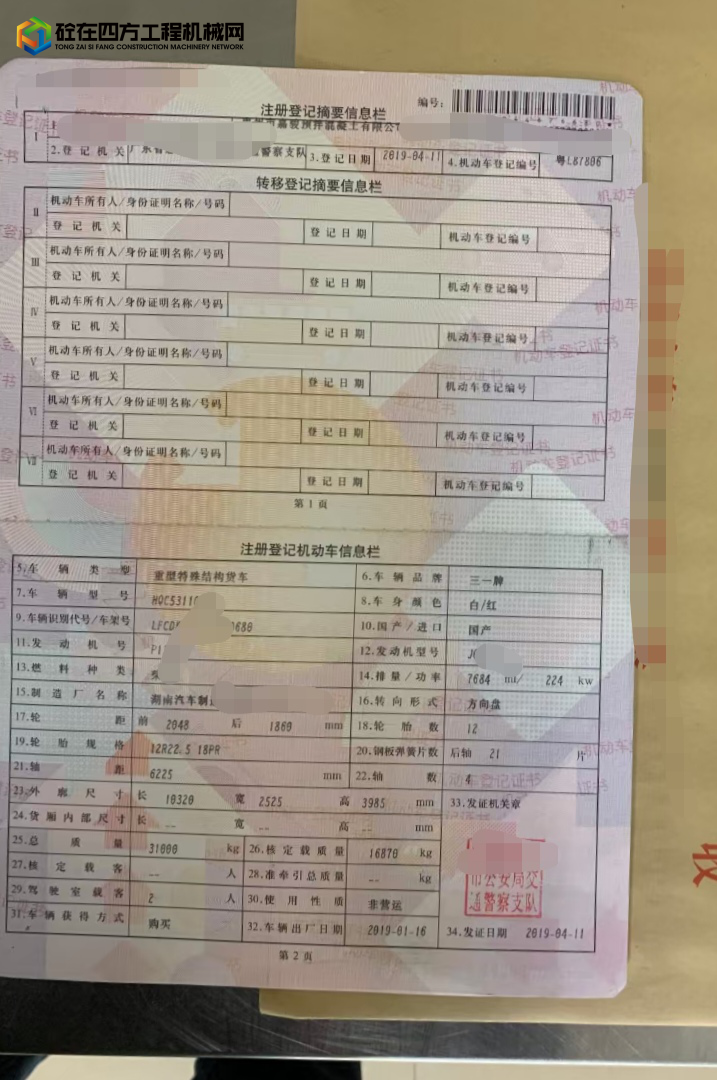 砼在四方工程机械网
TONG ZAI SI FANG CONSTRUCTION MACHINERY NETWORK
编号:
注册登记摘要信息栏
I 预拌混凝土有限公
2.登记机关 通警察支队 3.登记日期 2019-04-11 4.机动车登记编号 粤LB7806
转移登记摘要信息栏
II 机动车所有人/身份证明名称/号码
登记机关 登记日期 机动车登记编号
III 机动车所有人/身份证明名称/号码
登记机关 登记日期 机动车登记编号
IV 机动车所有人/身份证明名称/号码
登记机关 登记日期 机动车登记编号
V 机动车所有人/身份证明名称/号码
登记机关 登记日期 机动车登记编号
VI 机动车所有人/身份证明名称/号码
登记机关 登记日期 机动车登记编号
VII 机动车所有人/身份证明名称/号码
登记机关 登记日期 机动车登记编号
第1页
注册登记机动车信息栏
5.车辆类型 重型特殊结构货车 6.车辆品牌 三一牌
7.车辆型号 HQC5311 8.车身颜色 白/红
9.车辆识别代号/车架号 LFCD 0680 10.国产/进口 国产
11.发动机号 P1 12.发动机型号 J
13.燃料种类 14.排量/功率 7684 ml/ 224 kw
15.制造厂名称 湖南汽车制 16.转向形式 方向盘
17.轮距 前 2048 后 1860 mm 18.轮胎数 12
19.轮胎规格 12R22.5 18PR 20.钢板弹簧片数 后轴 21 片
21.轴距 6225 mm 22.轴数 4
23.外廓尺寸 长 10320 宽 2525 高 3985 mm 33.发证机关章
24.货厢内部尺寸 长 -- 宽 -- 高 -- mm
25.总质量 31000 kg 26.核定载质量 16870 kg
27.核定载客 -- 人 28.准牵引总质量 -- kg
市公安局交
通警察支队
29.驾驶室载客 2 人 30.使用性质 非营运
31.车辆获得方式 购买 32.车辆出厂日期 2019-01-16 34.发证日期 2019-04-11
第2页
收